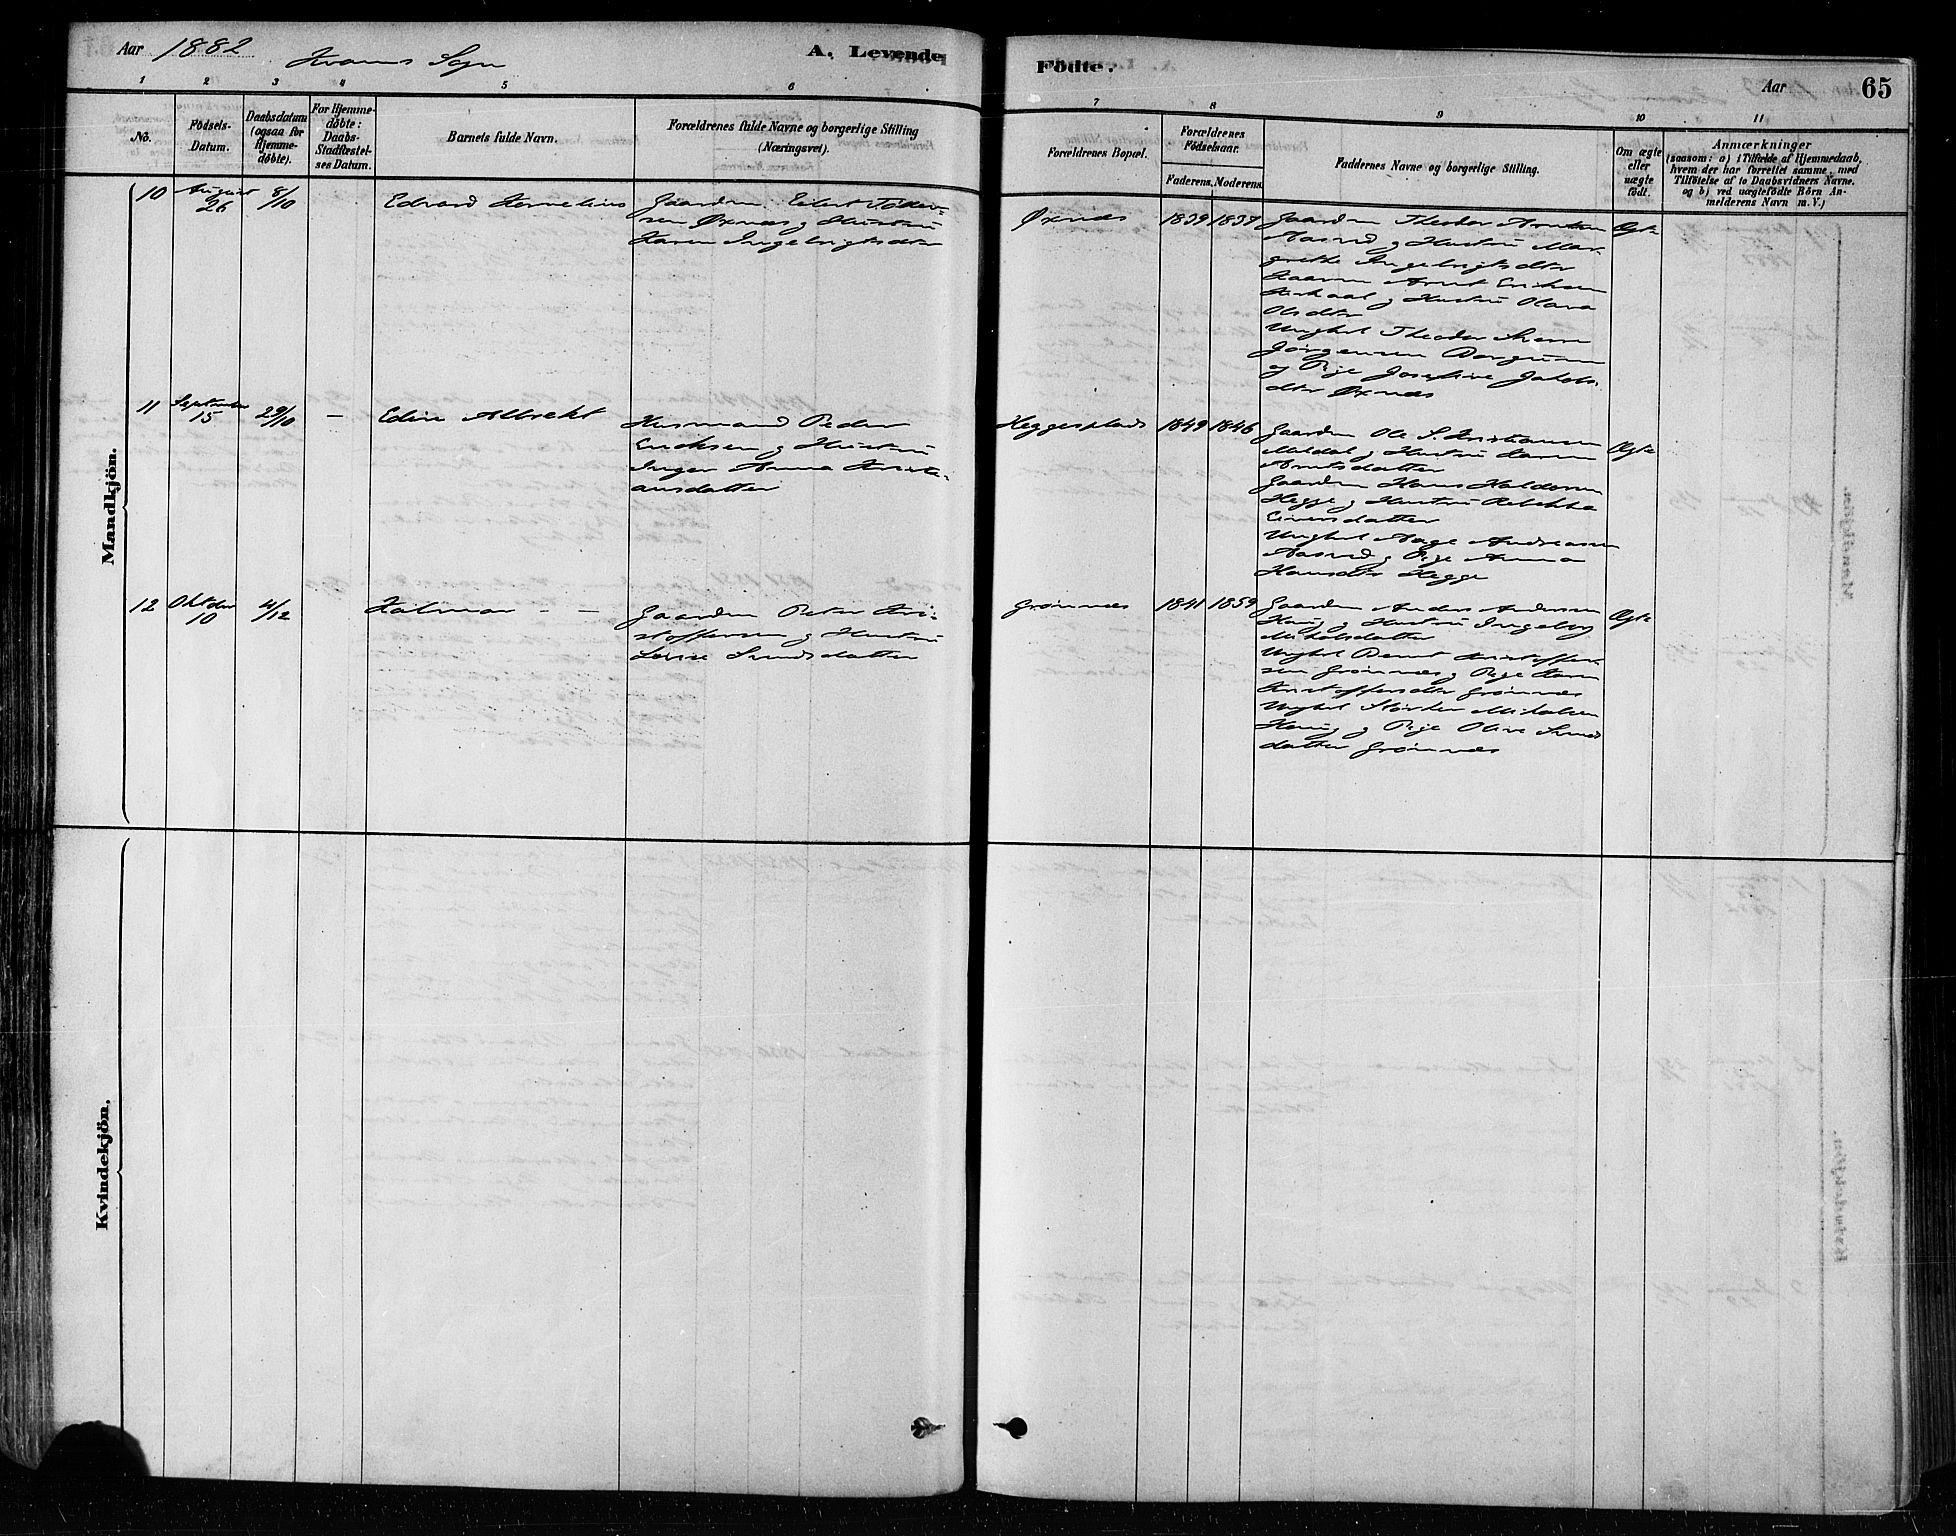 Aar 1882 Kvams Sogn A. Levende Födte. Aar 65
1 2 3 4 5 6 7 8 9 10 11
No.
Födsels-
Datum.
Daabsdatum
(ogsaa for
Hjemme-
döbte).
For Hjemme-
döbte:
Daabs-
Stadfæstel-
ses Datum.
Barnets fulde Navn.
Forældrenes fulde Navne og borgerlige Stilling
(Næringsvei).
Forældrenes Bopæl.
Forældrenes
Födselsaar.
Faderens. Moderens.
Faddernes Navne og borgerlige Stilling.
Om ægte
eller
uægte
födt.
Anmærkninger
(saasom: a) i Tilfælde af Hjemmedaab,
hvem der har forrettet samme, med
Tilföielse af to Daabsvidners Navne,
og b) ved uægtefödte Börn An-
melderens Navn m. V.)
Mandkjön.
10
August
26
8/10
Edvard Kornelius
Gaardm. Eilert Peder-
sen Øxnæs og Hustru
Karen Ingebrigtsdtr
Øxnæs
1839 1837
Gaardm Theodor Arntsen
Aasved og Hustru Mar-
grethe Ingebrigtsdtr
Kaarm Arnt Eriksen
og Hustru Olava
Olsdtr
Ungkrl Theodor
Jørgensen
og Pige Josefine Jakobs
dtr Øxnæs
Ægte
11
September
15
29/10
—
Edin Albrekt
Husmand Peder
Eriksen og Hustru
Inger Anna Kristi-
ansdatter
Heggesplads
1849 1846
Gaardm Ole S. Kristiansen
og Hustru Karen
Arntsdatter
Gaardm Hans Haldosen
Hegge og Hustru Rebekka
Eivensdatter
Ungkrl Aage Andreassen
Aasved og Pige Anna
Hansdtr Hegge
Ægte
12
Oktober
10
4/12
Halmar - -
Gaardm Peter Kri-
stoffersen og Hustru
Lovise Svendsdatter
Grønnæs
1841 1859
Gaardm Anders Andersen
Haug og Hustru Ingeborg
Mikalsdatter
Ungkrl Bernt Kristoffer-
sen Grønnæs og Pige Karen
Kristoffersdtr Grønnæs
Ungkrl Mikalsen
Haug og Pige Oline Svends
datter Grønnæs
Ægte
Kvindekjön.